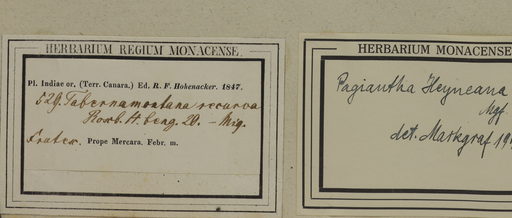 HERBARIUM REGIUM MONACENSE.
Pl. Indiae or. (Terr. Canara.) Ed. R. F. Hohenacker. 1847.
529. Tabernamontana recurva
Roxb. H. beng. 20. – Miq.
Frutex. Prope Mercara. Febr. m.
HERBARIUM MONACENSE
Pagiantha Heyneana
Mgf.
det. Markgraf 19